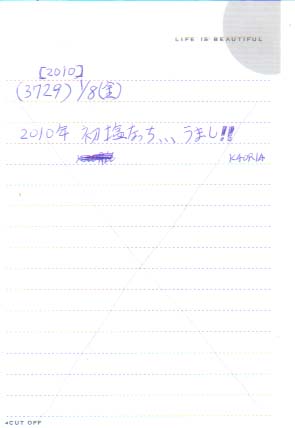 LIFE IS BEAUTIFUL
[2010]
(3729) 1/8(金)
2010年 初塩なっち、、、うまし!!
KAORIA
◂CUT OFF